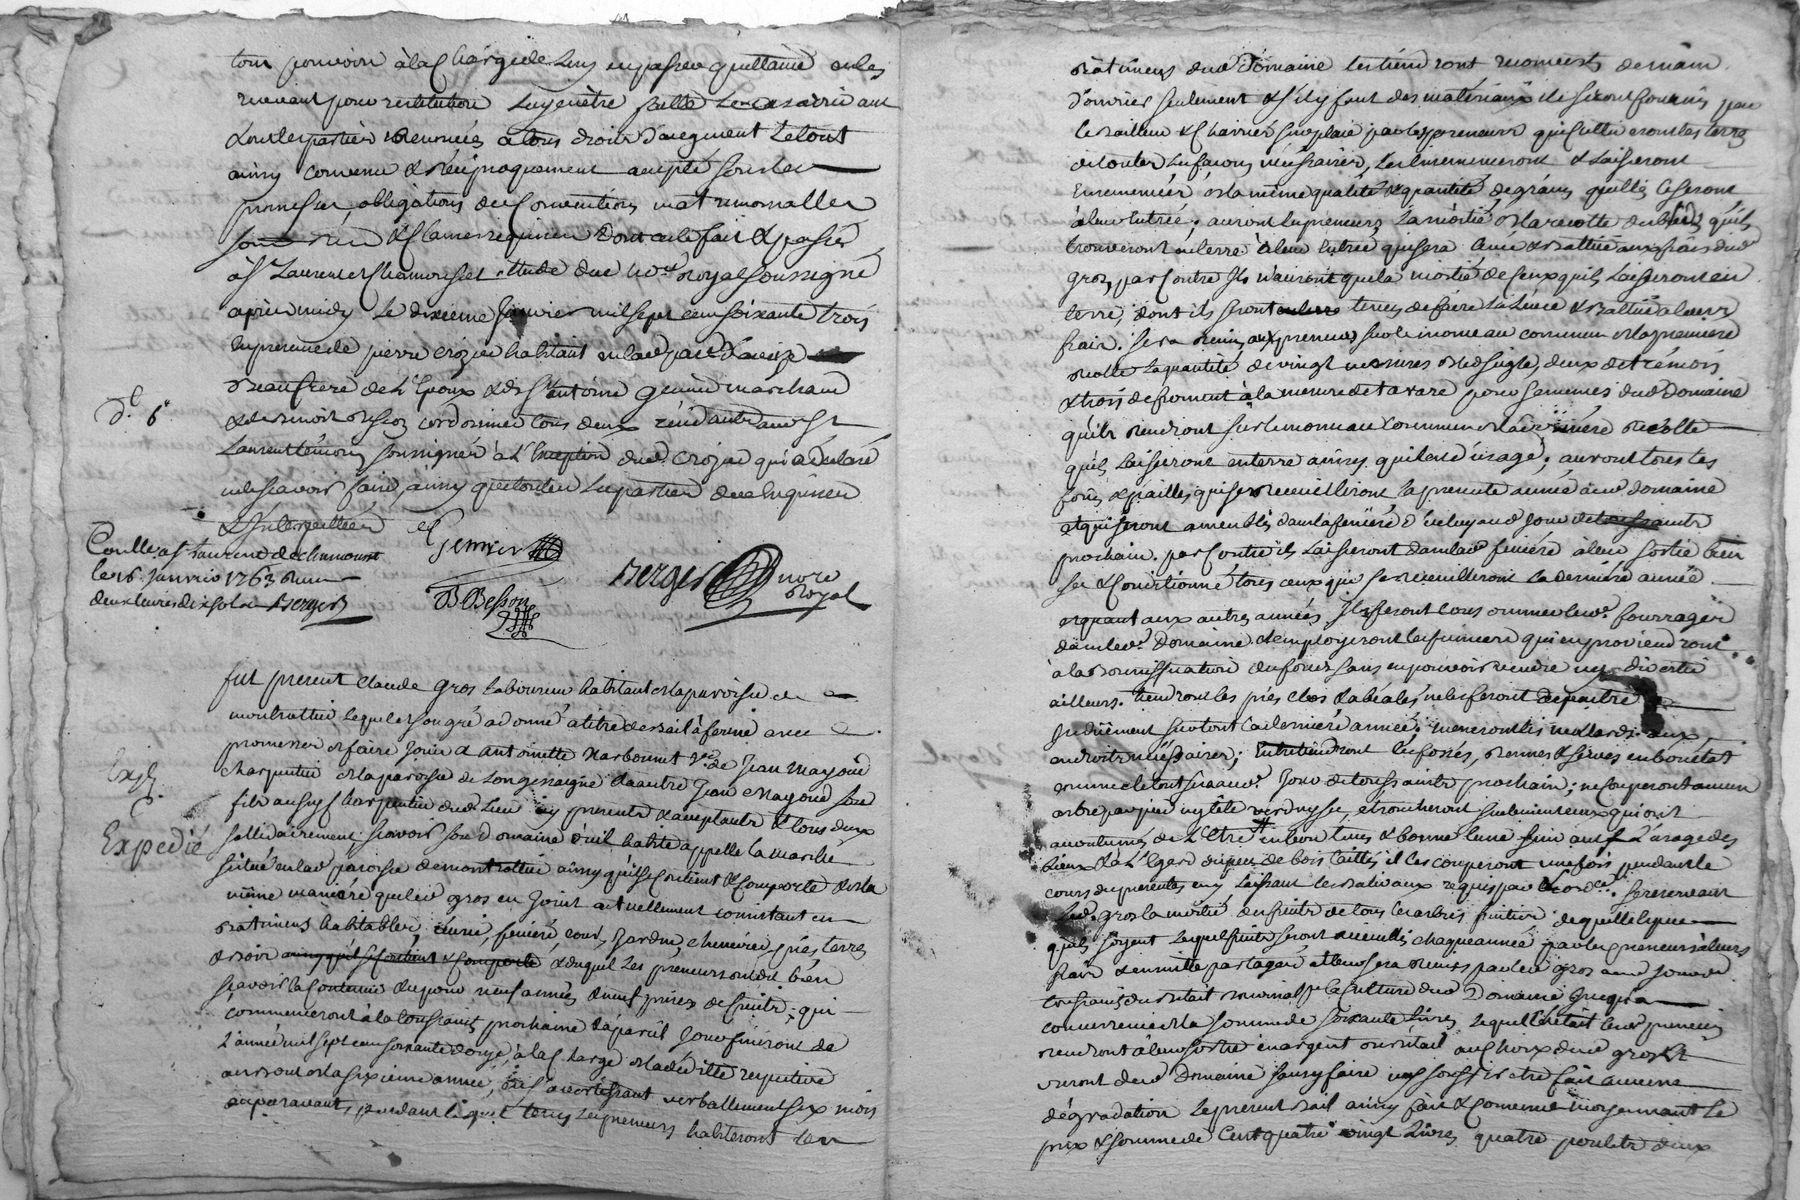 tout pouvoir à la charge de luy en passer quittance en les
recevant pour restitution luy être faitte le cas arrivant
dont les parties
ainsy convenu & réciproquement accepté sous les
promesses, obligations des conventions matrimonialles
dont acte fait & passé
à St Laurent de Chamousset étude du no.re royal soussigné
après midy le dixième janvier mil sept cent soixante trois
en présence de pierre crozier habitant en lad. par.
beaufrère de l'époux & de Sr antoine genier marchand
& de benoit besson cordonnier tous deux résidants aud. St
Laurent témoins soussignés à l'exception dud. crozier qui a déclaré
ne le sçavoir faire, ainsy que toutes les parties de ce enquises
& Interpellées
D.e 6.e
Genier
B Besson
Berger nore Royal
Conllé. a St Laurent de chamousset
le 16. janvier 1763 Reçu
deux livres dix sols Berger
fut present Claude Gros laboureur habitant de la paroisse de
montrottier lequel de son gré a donné à titre de bail à ferme avec
promesses de faire jouir à antoinette Narbonnet V.ve de Jean Mayoud
charpentier de la paroisse de Longessaigne & à autre Jean Mayoud son
fils aussy charpentier dud. lieu icy présents & acceptants & tous deux
sollidairement; sçavoir son domaine qu'il habite appellé la
situé en lad. paroisse de montrottier ainsy qu'il se contient & comporte & de la
même manière que led. gros en jouit actuellement consistant en
batiments habitables, écurie, fenière, cour, jardin, chenevière, prés, terres
& bois ainsy qu'il se contient & comporte & duquel les preneurs ont dit bien
sçavoir la contenue & ce pour neuf années & neuf prises de fruits, qui
commenceront à la toussaints prochaine & à pareil jour finiront de
l'année mil sept cent soixante douze, à la charge de la dédite respective
au bout de la sixième année, en s'avertissant verballement six mois
auparavant, pendant lequel tems les preneurs habiteront les
Exp.
Expedié
batiments dud. Domaine les tiendront de main
d'ouvrier seulement & s'il y faut des matériaux ils seront fournis par
le bailleur & charriés sur place par les preneurs qui cultiveront les terres
de toutes les façons nécessaires, les ensemenceront & laisseront
ensemencées de la même qualité & quantité de grains qu'elles le seront
à leur entrée; auront les preneurs la moitié de la récolte des bleds qu'ils
trouveront en terre à leur entrée qui sera levée & battue aux frais dud.
gros, par contre Ils n'auront que la moitié de ceux qu'ils laisseront en
terre, dont ils seront tenus de faire la levée & battue à leurs
frais. sera remis aux preneurs sur le monceau commun de la première
récolte la quantité de vingt mesures bled seigle, deux de trémois
& trois de froment à la mesure de tarare pour semences dud. Domaine
qu'ils rendront sur le monceau commun de la dernière récolte
qu'ils laisseront en terre ainsy qu'il est d'usage; auront tous les
foins & pailles qui se recueilleront la présente année aud. domaine
et qui seront amenés dans la fenière d'iceluy aud. jour de toussaints
prochain. par contre ils laisseront dans lad. fenière à leur sortie bien
sec & conditionné tous ceux qui se recueilleront la dernière année.
et quant aux autres années Ils feront tous consumer lesd. fourrages
dans led. Domaine & employeront les fumiers qui en proviendront
à la bonnification des fonds sans en pouvoir vendre ny divertir
ailleurs. tiendront les prés clos & ne les feront depaitre
surtout la dernière année; meneront les aux
endroits nécessaires; Entretiendront les fossés, & serves en bon état
comme le tout sera aud. jour de toussaints prochain; ne couperont aucun
arbre par pied ny tête verd ny sec, ebrancheront seulement ceux qui ont
accoutumés de l'être en bon tems & bonne lune suivant l'usage des
lieux & à l'égard des pièces de bois taillis, il les couperont une fois pendant le
cours du présent en y laissant les baliveaux requis par l'ord.ce. se reservant
led. gros la moitié des fruits de tous les arbres fruitiers de quelle espèce
qu'ils soyent lesquels fruits seront recueillis chaque année par les preneurs à leurs
frais & ensuitte partagés et leur sera remis par led. gros aud. jour de
toussaints du bétail pour la culture dud. Domaine jusqu'à
concurrence de la somme de soixante livres laquelle lesd. preneurs
rendront à leur sortie en argent ou bétail au choix dud. gros &
useront dud. Domaine sans y faire ny souffrir être fait aucune
dégradation le present bail ainsy fait & convenu moyennant le
prix & somme de Cent quatre vingt Livres quatre poulets deux